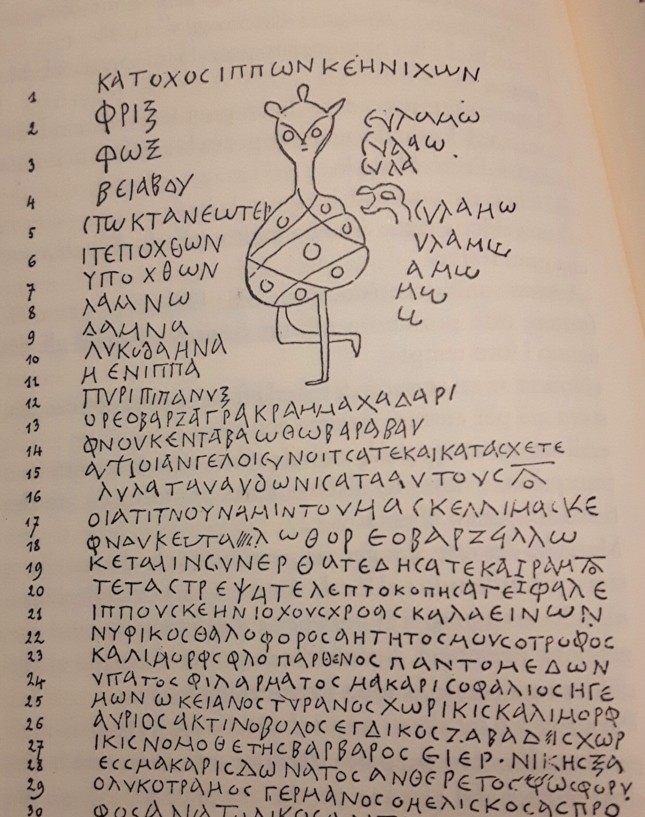 1 ΚΑΤΟΧΟϹΙΠΠΩΝΚΕΗΝΙΧΩΝ
2 ΦΡΙΞ ЄΥΛΑΜΩ
3 ΦΩΞ ЄΥΛΑΩ
ЄΥΛΑ
4 ΒΕΙΑΒΟΥ
5 ϹΤΩΚΤΑΝΕΩΤΕΡ ЄΥΛΑΜΩ
6 ΙΤΕΠΟΧΘΩΝ ΥΛΑΜΩ
7 ΥΠΟΧΘΩΝ ΑΜΩ
8 ΛΑΜΝΩ ΜΩ
9 ΔΑΜΝΑ Ω
10 ΛΥΚΟΔΑΜΝΑ
11 ΜΕΝΙΠΠΑ
12 ΠΥΡΙΠΙΠΑΝΥΞ
13 ΟΡΕΟΒΑΡΖΑΓΡΑΚΡΑΜΜΑΧΑΔΑΡΙ
14 ΦΝΟΥΚΕΝΤΑΒΑΩΘΩΒΑΡΑΒΑΥ
15 ΑΓΙΟΙΑΝΓΕΛΟΙϹΥΝΟΙΤϹΑΤΕΚΑΙΚΑΤΑϹΧΕΤΕ
16 ΛΥΛΑΤΑΝΑΥΔΩΝΙϹΑΤΑΑΥΤΟΥϹΤΟ
17 ΟΙΑΤΙΤΝΟΥΝΑΜΙΝΤΟΥΜΑϹΚΕΛΛΙΜΑϹΚΕ
18 ΦΝΟΥΚΕΝΤΑ ΛΩΘΟΡΕΟΒΑΡΖΑΛΛΩ
19 ΚΕΤΑΙΝϹΥΝΕΡΘΑΤΕΔΗϹΑΤΕΚΑΙΡΑΜΤΟ
20 ΤΕΤΑϹΤΡΕΨΑΤΕΛΕΠΤΟΚΟΠΗϹΑΤΕΙΦΑΛΕ
21 ΙΠΠΟΥϹΚΕΗΝΙΟΧΟΥϹΧΡΟΑϹΚΑΛΑΕΙΝΩΝ
22 ΝΥΦΙΚΟϹΘΑΛΟΦΟΡΟϹΑΗΤΗΤΟϹΜΟΥϹΟΤΡΟΦΟϹ
23 ΚΑΛΙΜΟΡΦϹΦΛΟΠΑΡΘΕΝΟϹΠΑΝΤΟΜΕΔΩΝ
24 ΥΠΑΤΟϹΦΙΛΑΡΜΑΤΟϹΜΑΚΑΡΙϹΟΦΑΛΙΟϹΗΓΕ
25 ΜΩΝΩΚΕΙΑΝΟϹΤΥΡΑΝΟϹΧΩΡΙΚΙϹΚΑΛΙΜΟΡΦ
26 ΑΥΡΙΟϹΑΚΤΙΝΟΒΟΛΟϹΕΓΔΙΚΟϹΖΑΒΑΔΙϹΧΩΡ
27 ΙΚΙϹΝΟΜΟΘΕΤΗϹΒΑΡΒΑΡΟϹΕΙΕΡ·ΝΙΚΗϹΞΑ
28 ΕϹϹΜΑΚΑΡΙϹΔΩΝΑΤΟϹΑΝΘΕΡΕΤΟϹΦΩϹΦΟΡΥ
29 ΟΛΥΚΟΤΡΑΜΟϹΓΕΡΜΑΝΟϹΟΜΕΛΙϹΚΟϹΑϹΠΡΟ
30